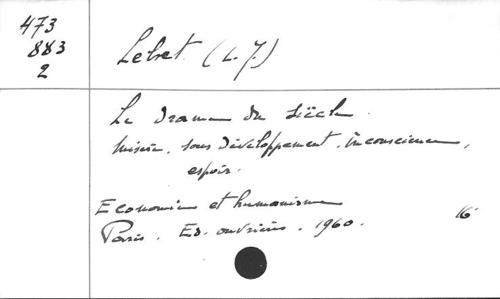 473
883
2
Lebret (L. J.)
Le Drame du siècle.
Misère, sous développement, inconscience,
espoir.
Economie et humanisme
Paris. Ed. ouvrières. 1960. 16°